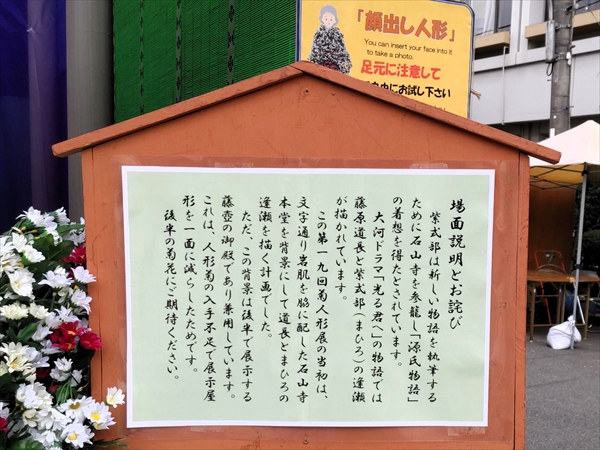 「顔出し人形」
You can insert your face into it
to take a photo.
足元に注意して
にお試し下さい
場面説明とお詫び
紫式部は新しい物語を執筆する
ために石山寺を参籠し「源氏物語」
の着想を得たとされています。
大河ドラマ「光る君へ」の物語では
藤原道長と紫式部(まひろ)の逢瀬
が描かれています。
この第一九回菊人形展の当初は、
文字通り岩肌を脇に配した石山寺
本堂を背景にして道長とまひろの
逢瀬を描く計画でした。
ただ、この背景は後半で展示する
藤壺の御殿であり兼用しています。
これは、人形菊の入手不足で展示屋
形を一面に減らしたためです。
後半の菊花にご期待ください。